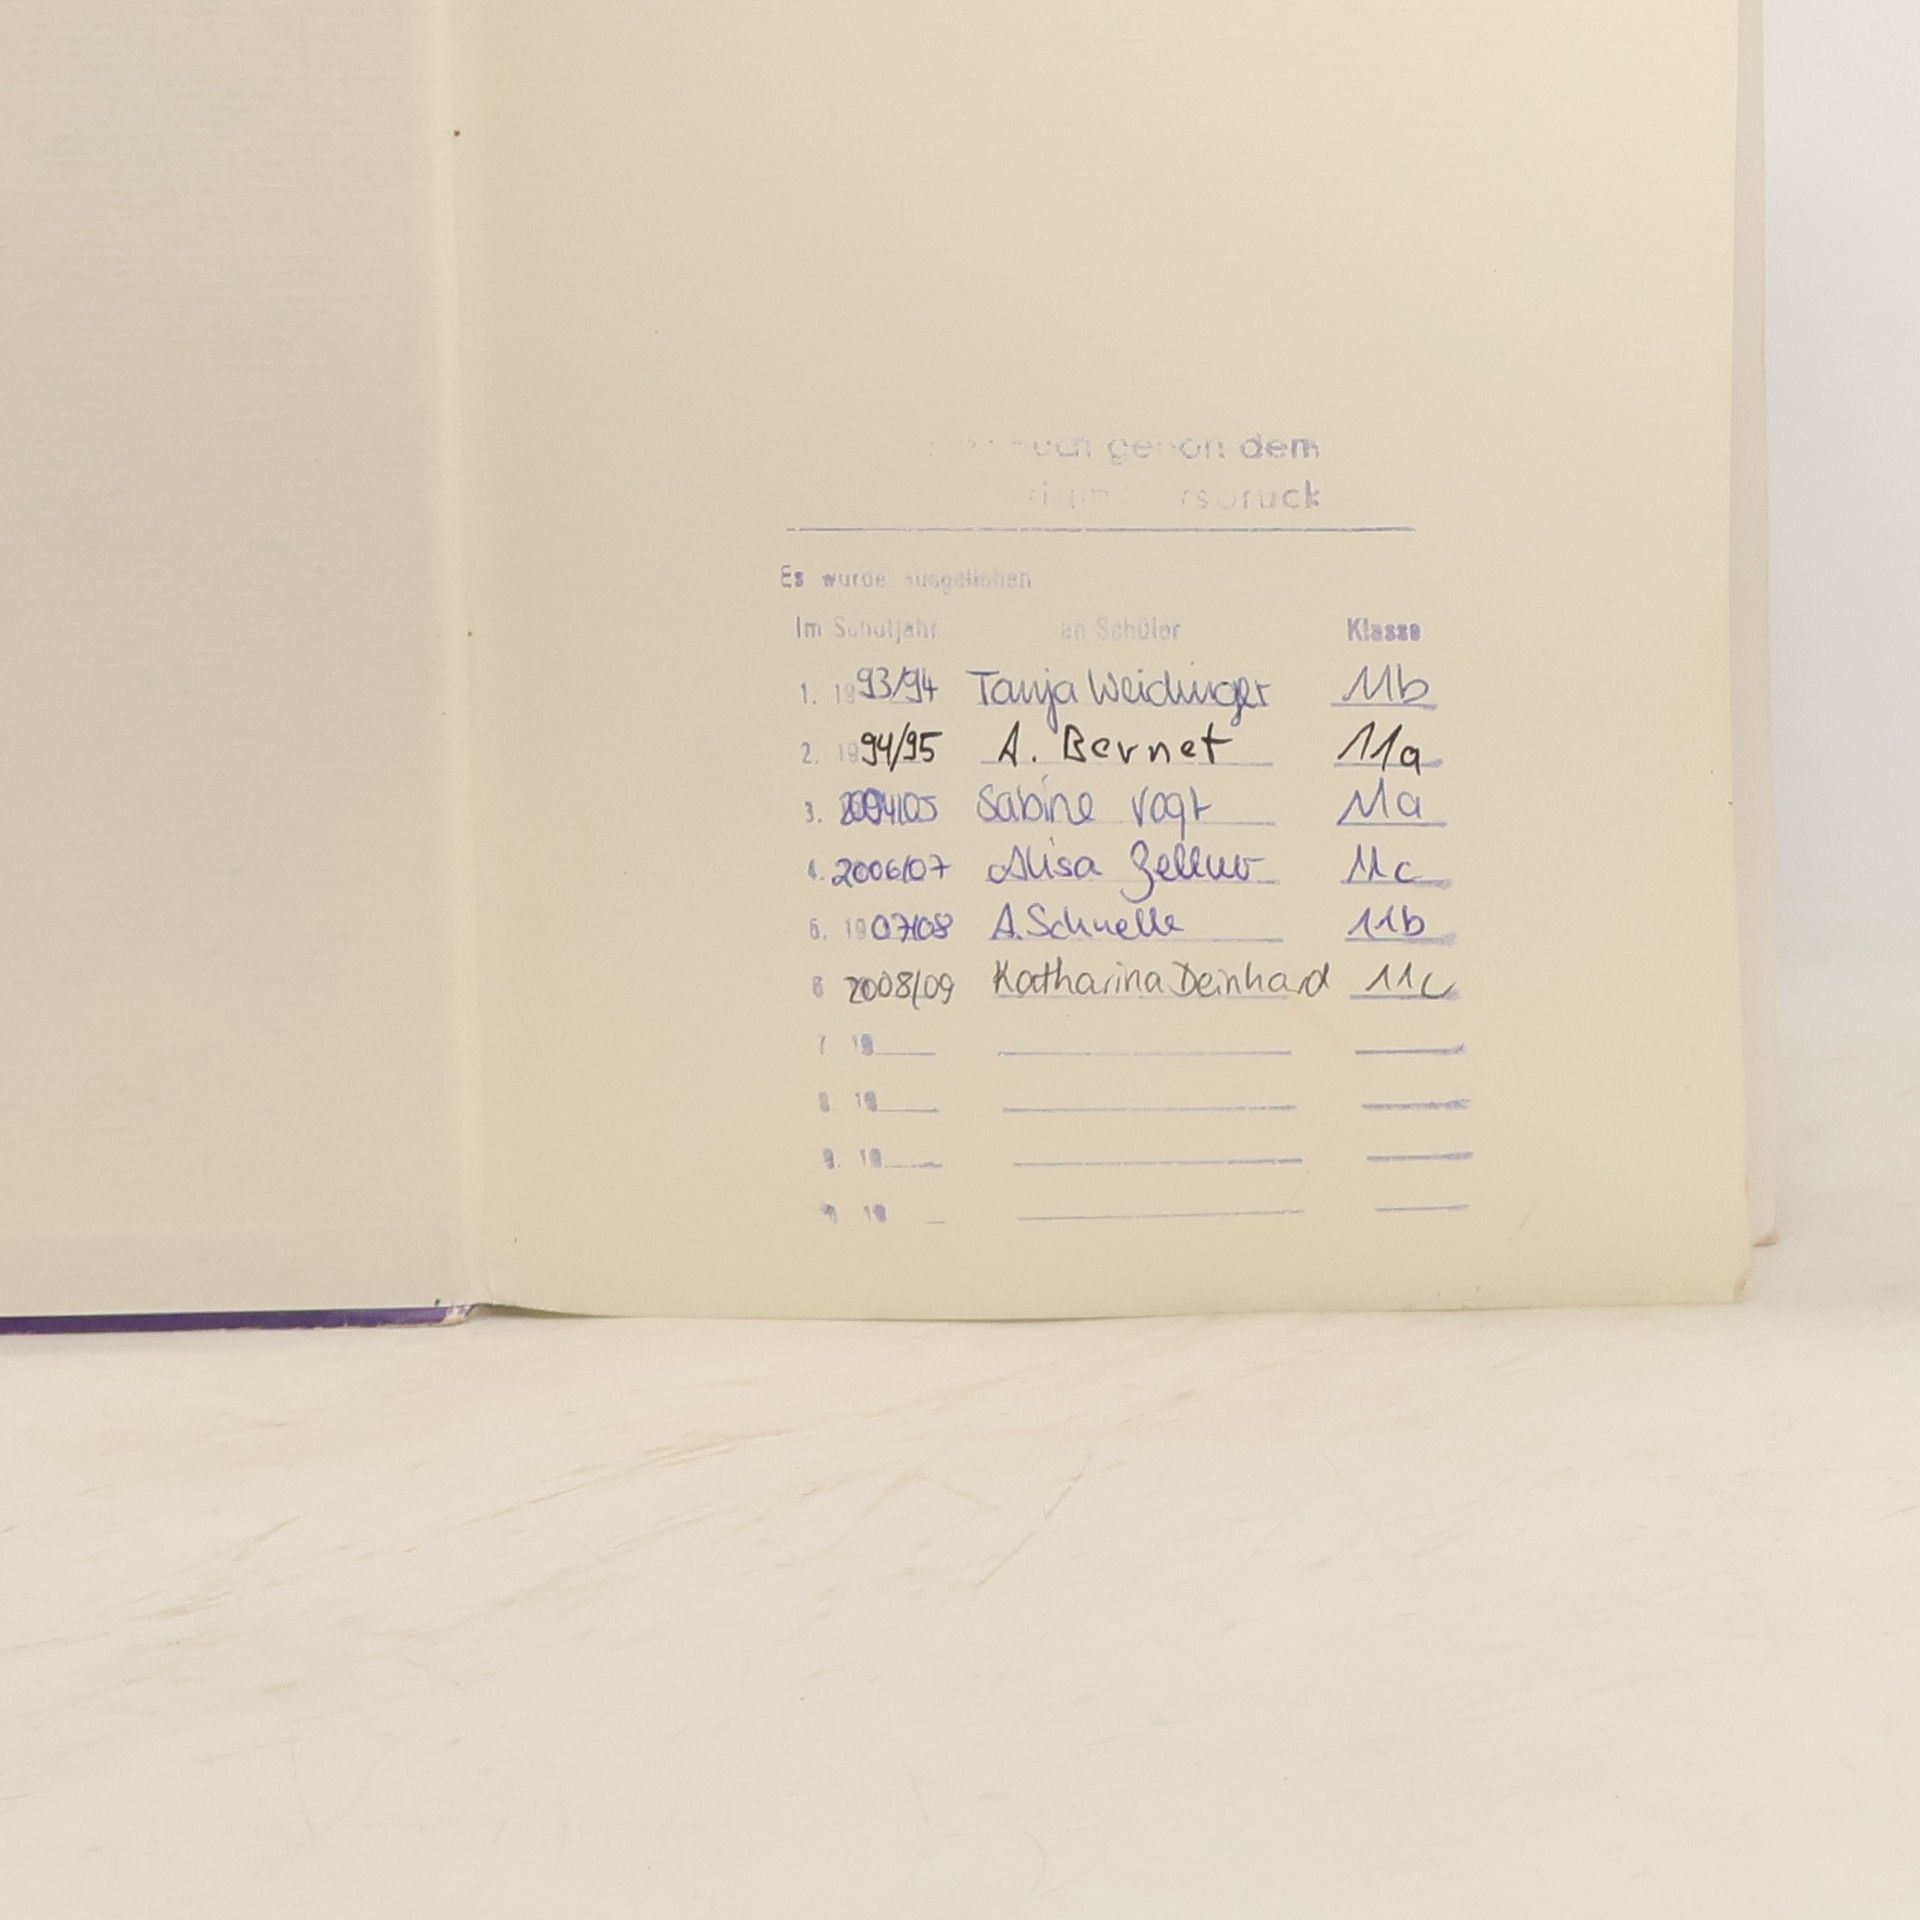 dem
Es wurde ausgeliehen
Im Schuljahr an Schüler Klasse
1. 1993/94 Tanja Weidinger 11b
2. 1994/95 A. Bernet 11a
3. 2004/05 Sabine Vogt 11a
4. 2006/07 Alisa Zellner 11c
5. 1907/08 A. Schnelle 11b
6 2008/09 Katharina Deinhard 11c
7 19
8 19
9. 19
19